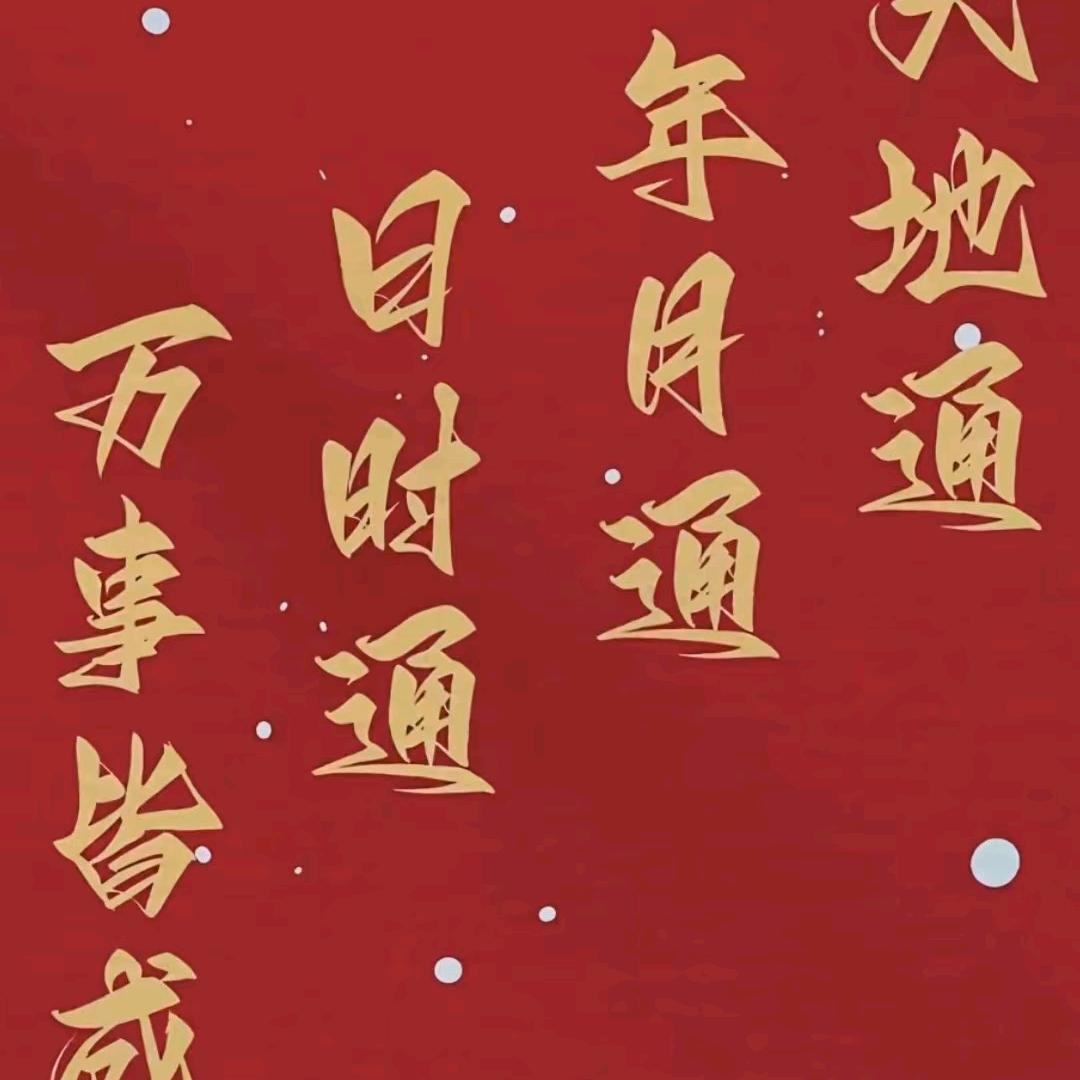 天地通
年月通
日时通
万事皆成